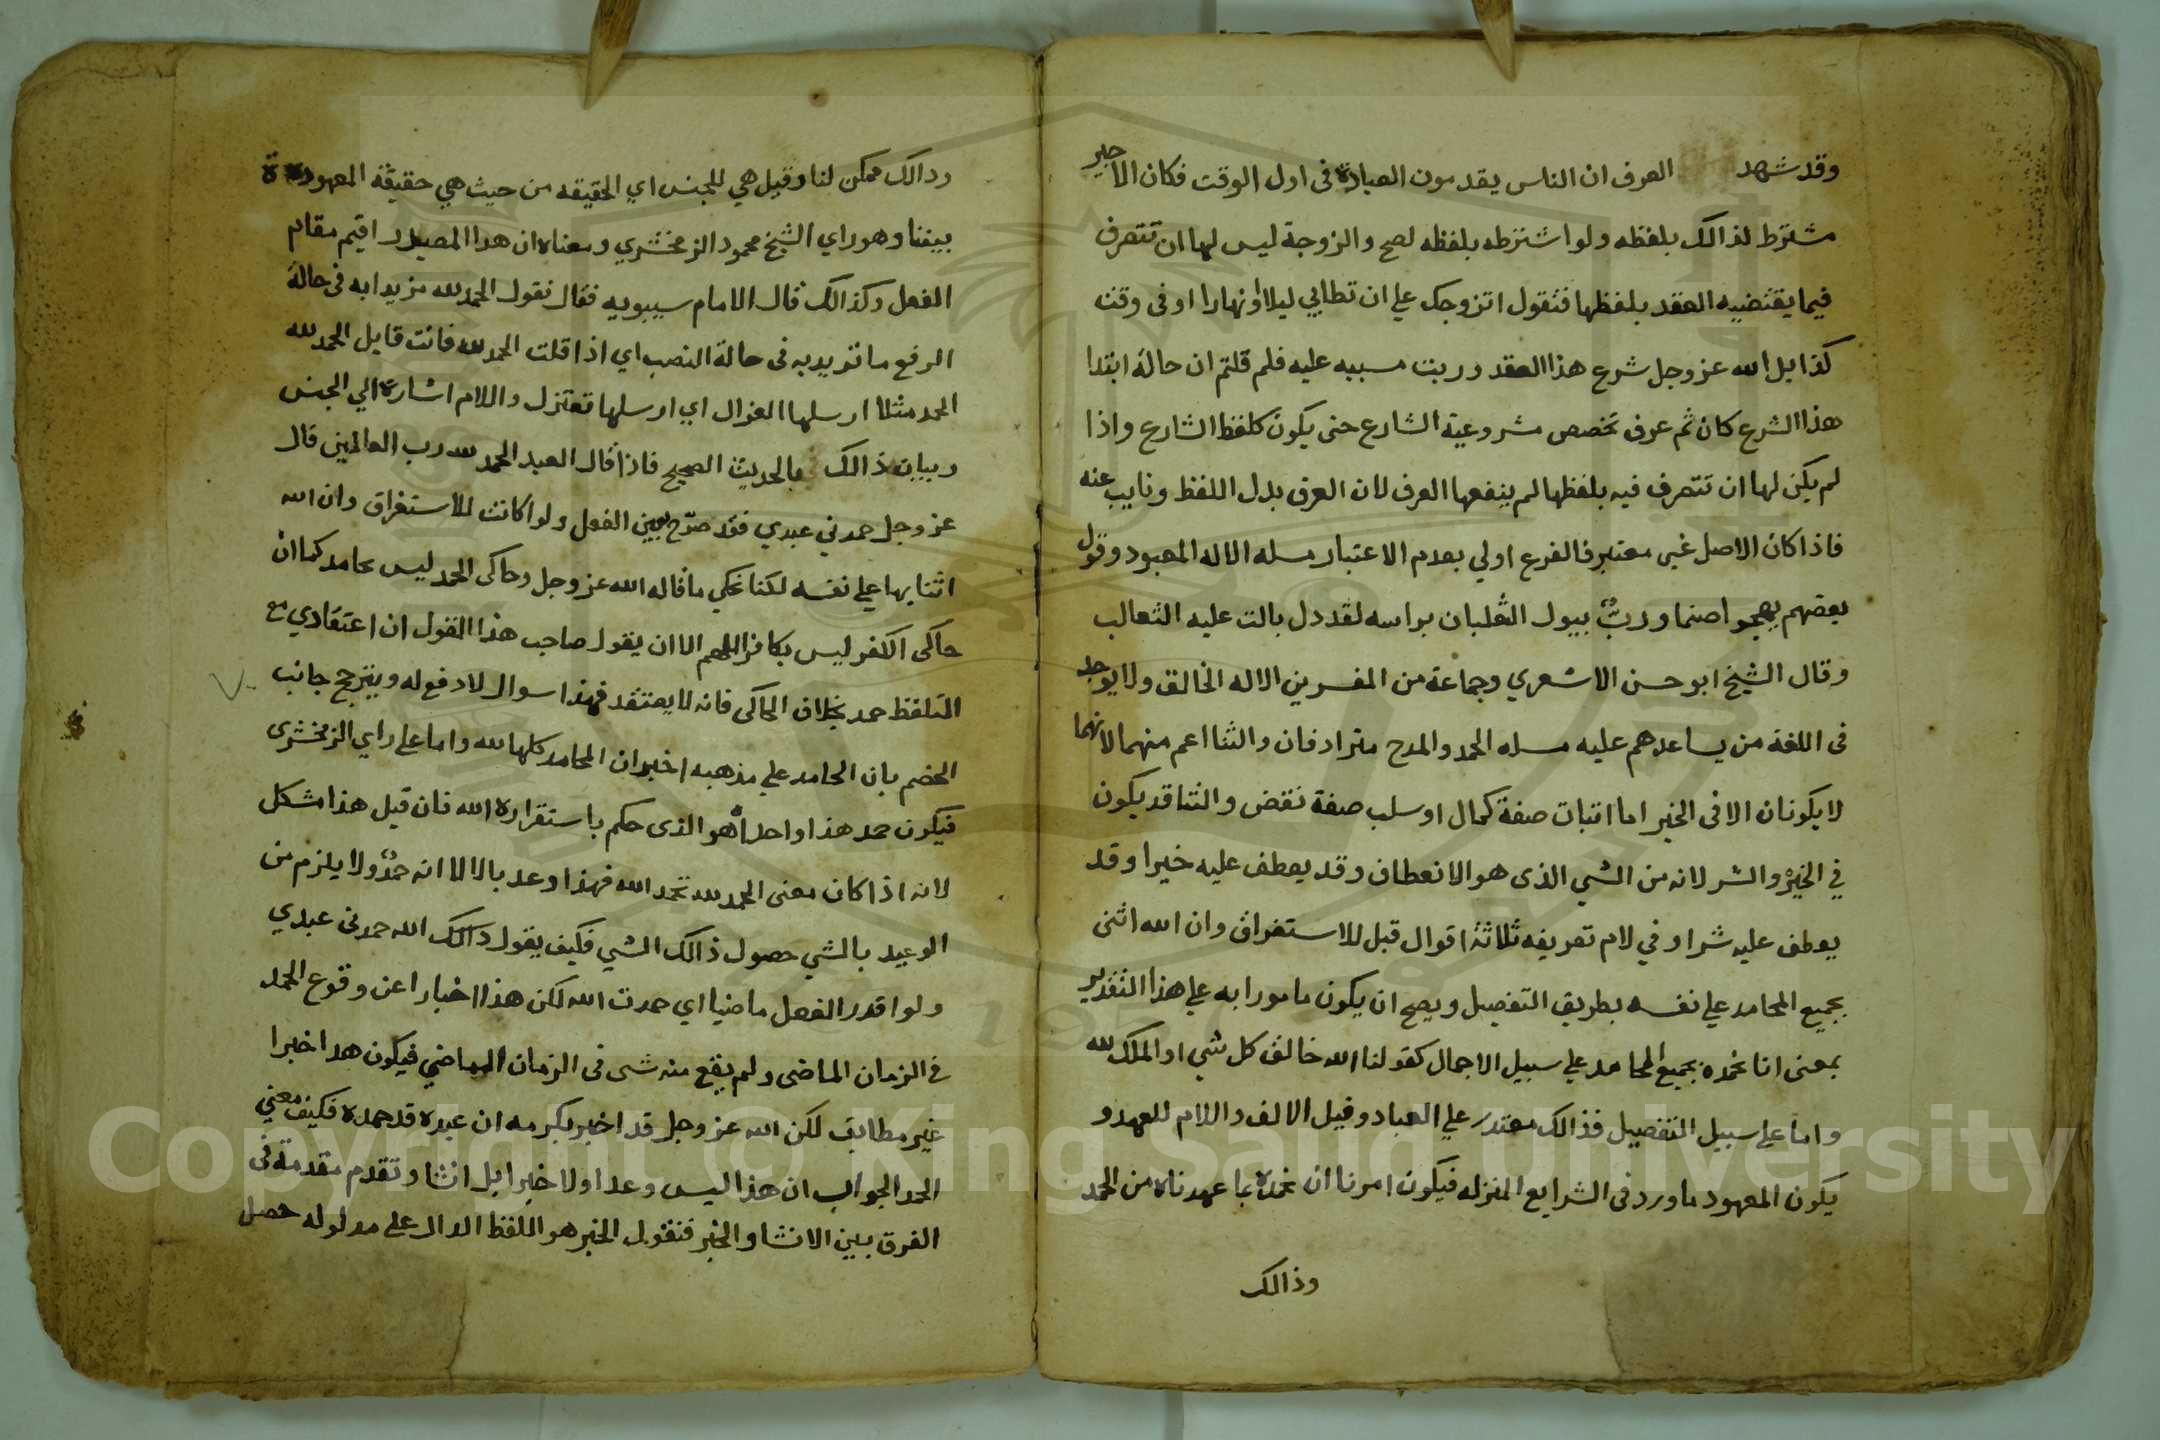 وقد شهد العرف ان الناس يقدمون العبادة في اول الوقت فكان الاجير
مشترط لذالك بلفظه ولو اشترطه بلفظه لصح والزوجة ليس لها ان تتصرف
فيما يقتضيه العقد بلفظها فتقول اتزوجك علي ان تطالبي ليلا او نهارا او في وقت
كذا بل الله عز وجل شرع هذا العقد وربت مسببه عليه فلم قلتم ان حالة ابتدا
هذا الشرع كان ثم عرف تخصص مشروعية الشارع حتى يكون كلفظ الشارع واذا
لم يكن لها ان تتصرف فيه بلفظها لم ينفعها العرف لان العرف بدل اللفظ ونايب عنه
فاذا كان الاصل غير معتبر فالفرع اولي بعدم الاعتبار مسله الاله المعبود وقول
بعضهم يهجوا صنما ورب يبول الثعلبان براسه لقد ذل بالت عليه الثعالب
وقال الشيخ ابو حسن الاشعري وجماعة من المفسرين الاله الخالق ولا يوجد
في اللغة من يساعدهم عليه مسله الحمد والمدح مترادفان والثنا اعم منهما لانهما
لا يكونان الا في الخير اما اتبات صفة كمال او سلب صفة نقض والثنا قد يكون
في الخير والشر لانه من الشي الذى هو الانعطاف وقد يعطف عليه خيرا وقد
يعطف عليه شرا وفي لام تعريفه ثلاثة اقوال قبل للاستغراق وان الله اثنى
بجميع المحامد علي نفسه بطريق التفصيل ويصح ان يكون مامورا به علي هذا التقدير
بمعنى انا نحمده بجميع المحامد علي سبيل الاجمال كقولنا الله خالق كل شي او الملك لله
واما علي سبيل التفصيل فذالك معتدر علي العباد وقيل الالف واللام للعهد و
يكون المعهود ما ورد في الشرايع المنزله فيكون امرنا ان نحمده بما عهدناه من الحمد
وذالك
وذالك ممكن لنا وقيل هي للجنس اي الحقيقه من حيث هي حقيقة المعهودة
بيننا وهو راي الشيخ محمود الزمخشري ومعناه ان هذا المصدر اقيم مقام
الفعل وكذالك قال الامام سيبويه فقال نقول الحمد لله مزيدا به في حالة
الرفع ما تريد به في حالة النصب اي اذا قلت الحمد لله فانت قايل الحمد لله
الحمد مثلا ارسلها العزال اي ارسلها تعتزل واللام اشارة الي الجنس
وبيان ذالك بالحديث الصحيح فاذا قال العبد الحمد لله رب العالمين قال
عز وجل حمدني عبدي فقد صرح بعين الفعل ولو كانت للاستغراق وان الله
اثنا بها علي نفسه لكنا نحكي ما قاله الله عز وجل وحاكى الحمد ليس بحامد كما ان
حاكى الكفر ليس بكافر اللهم الا ان يقول صاحب هذا القول ان اعتقادي مع
التلفظ حمد بخلاف الحاكى فانه لا يعتقد فهذا سوال لا دفع له ويترجح جانب
الخصم بان الحامد علي مذهبه اخبر ان المحامد كلها لله واما علي راي الزمخشرى
فيكون حمد هذا واحدا هو الذى حكم باستقراره الله فان قيل هذا مشكل
لانه اذا كان معنى الحمد لله نحمد الله فهذا وعد بالا لا انه حمد ولا يلزم من
الوعيد بالشي حصول ذالك الشي فكيف يقول ذالك الله حمدني عبدي
ولو اقدر الفعل ماضيا اي حمدت الله لكن هذا اخبارا عن وقوع الحمد
في الزمان الماضي ولم يقع منه شى في الزمان الماضي فيكون هذا خبرا
غير مطابق لكن الله عز وجل قد اخبر بكرمه ان عبده قد حمده فكيف معني
الحمد الجواب ان هذا ليس وعدا ولا خبرا بل انشا وتقدم مقدمة في
الفرق بين الانشا والخبر فنقول الخبر هو اللفظ الدال علي مدلوله حصل
Copyright © King Saud University